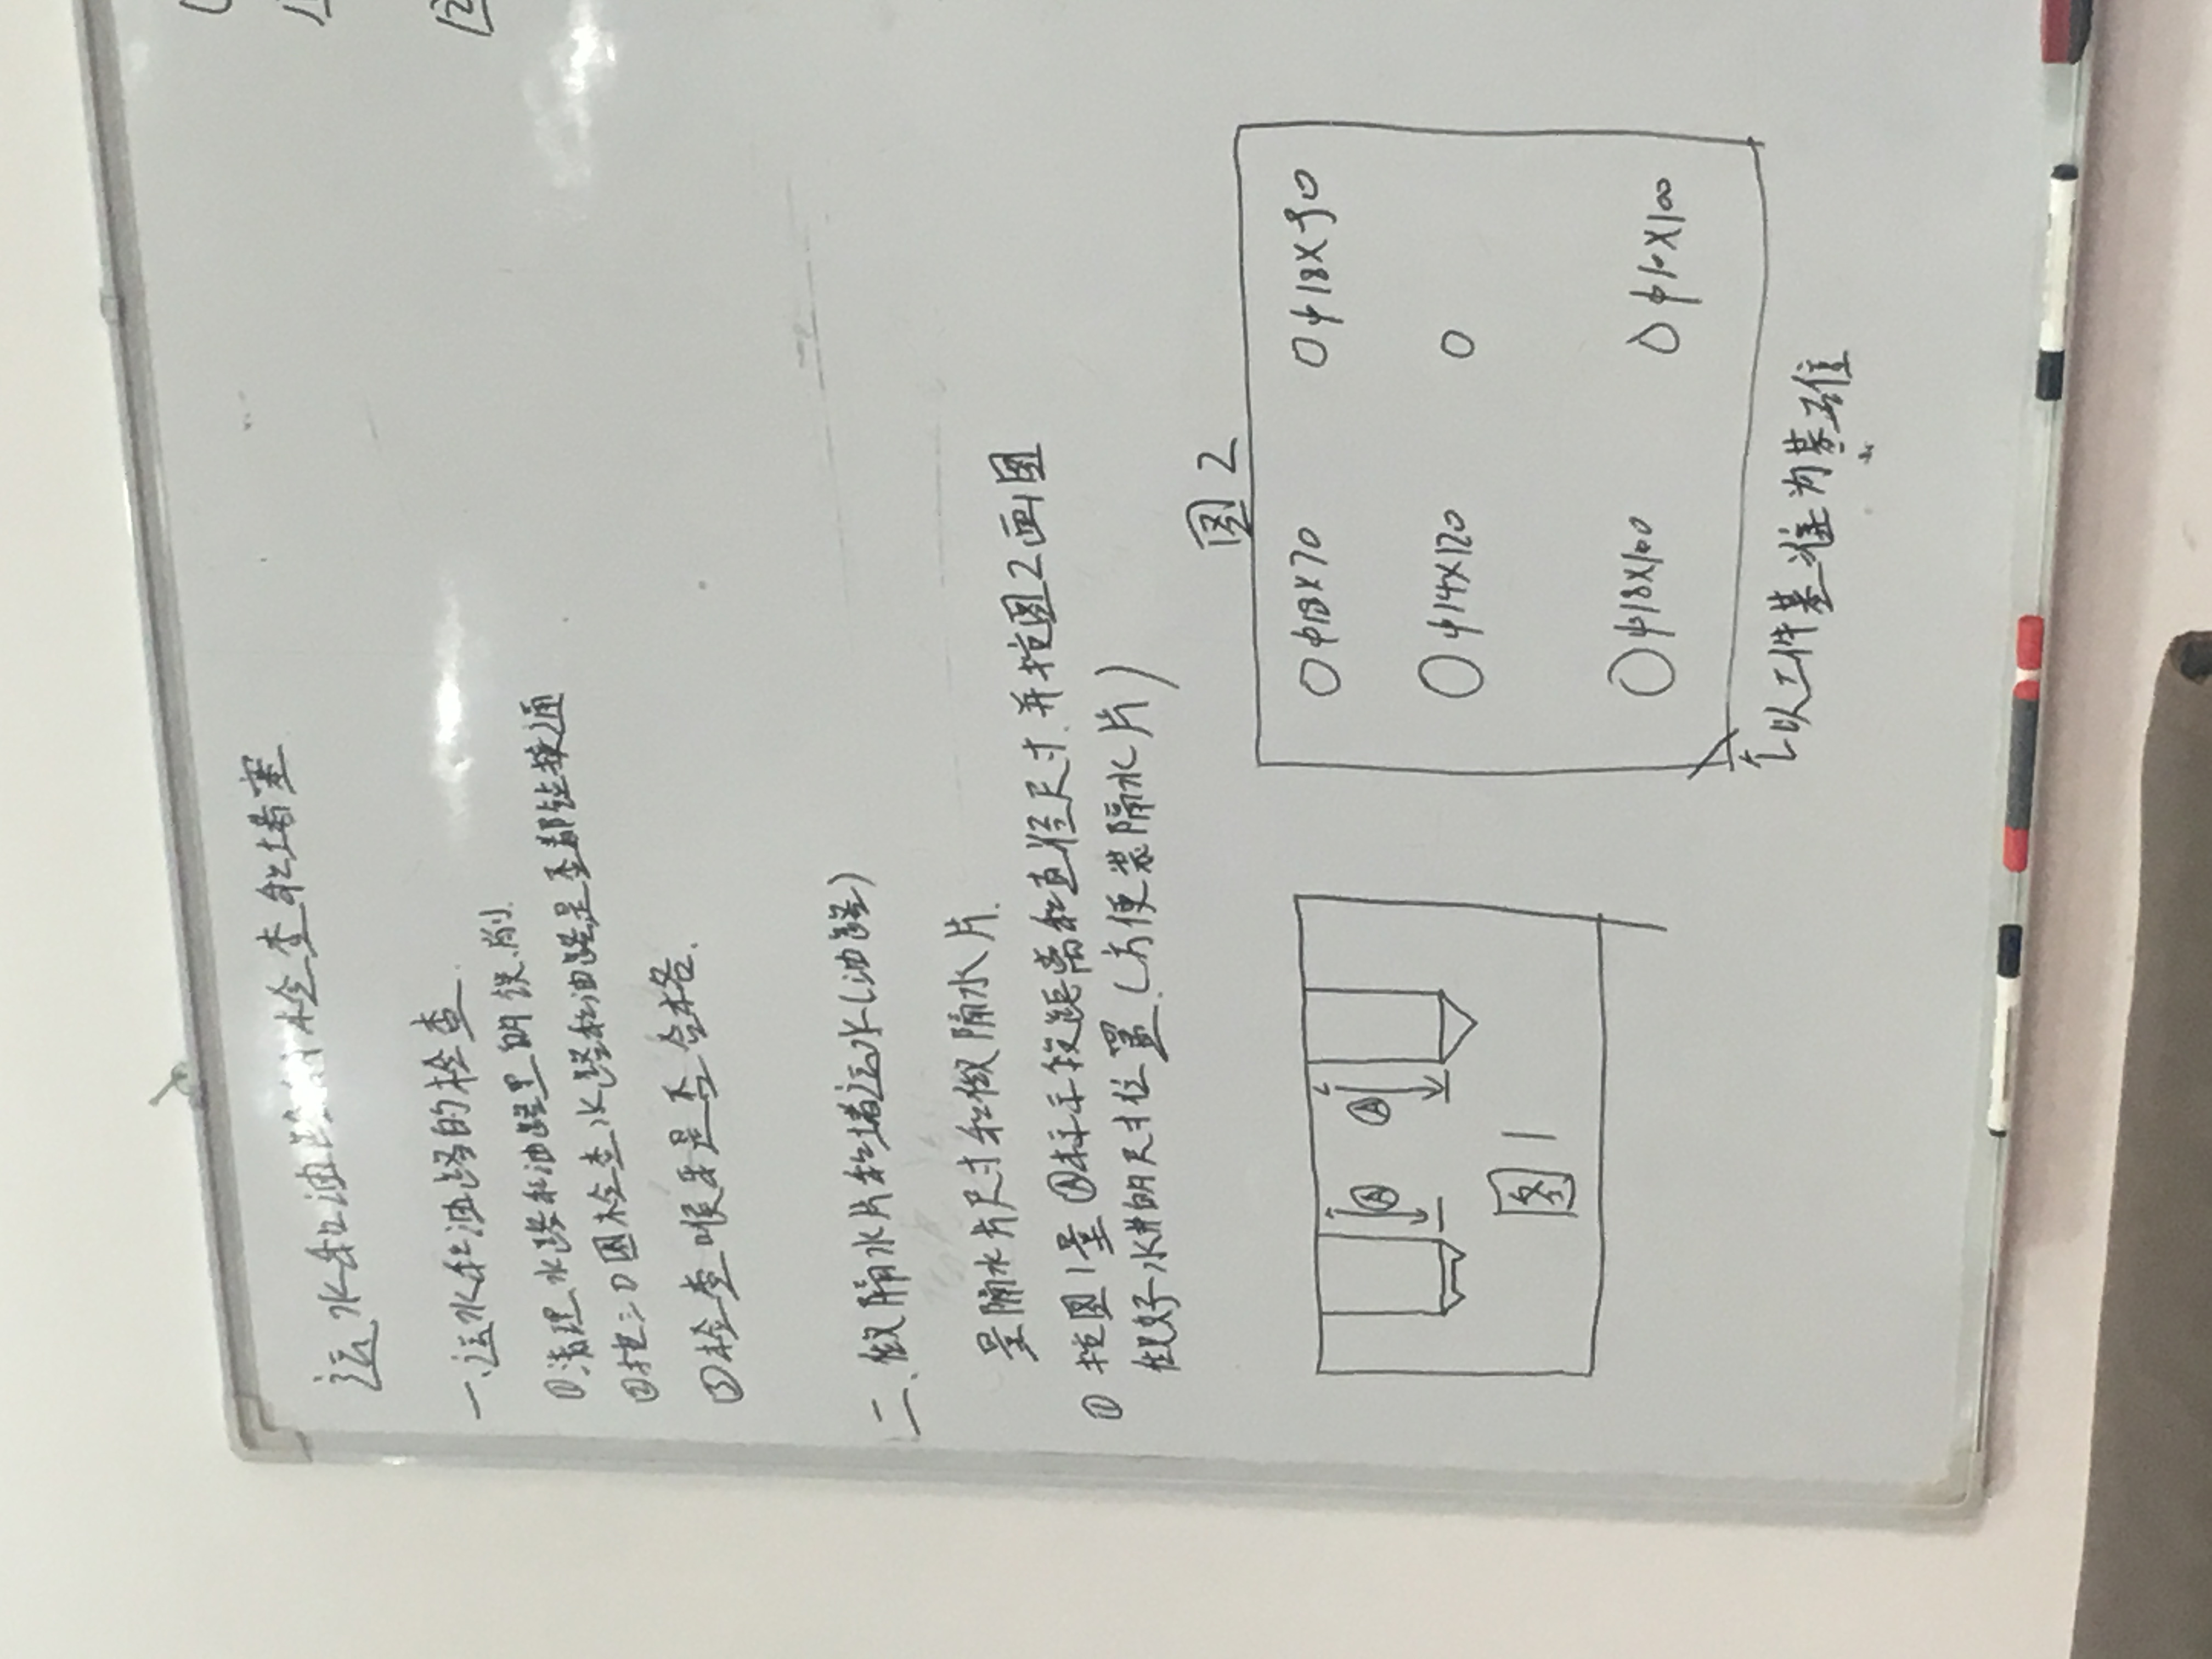 运水和油路的检查和堵塞
一、运水和油路的检查.
①清理水路和油路里的铁削.
②按三D图检查水路和油路是否都钻接通
③检查喉牙是否合格.
二、做隔水片和堵运水(油路)
量隔水片尺寸和做隔水片.
① 按图1量Ⓐ标示段距离和直径尺寸.并按图2画图
做好水井的尺寸位置.(方便装隔水片)
图2
Φ18X70
Φ18X90
Ⓐ
Ⓐ
Φ14X120
图1
Φ18X100
Φ10X100
以工件基准为基准